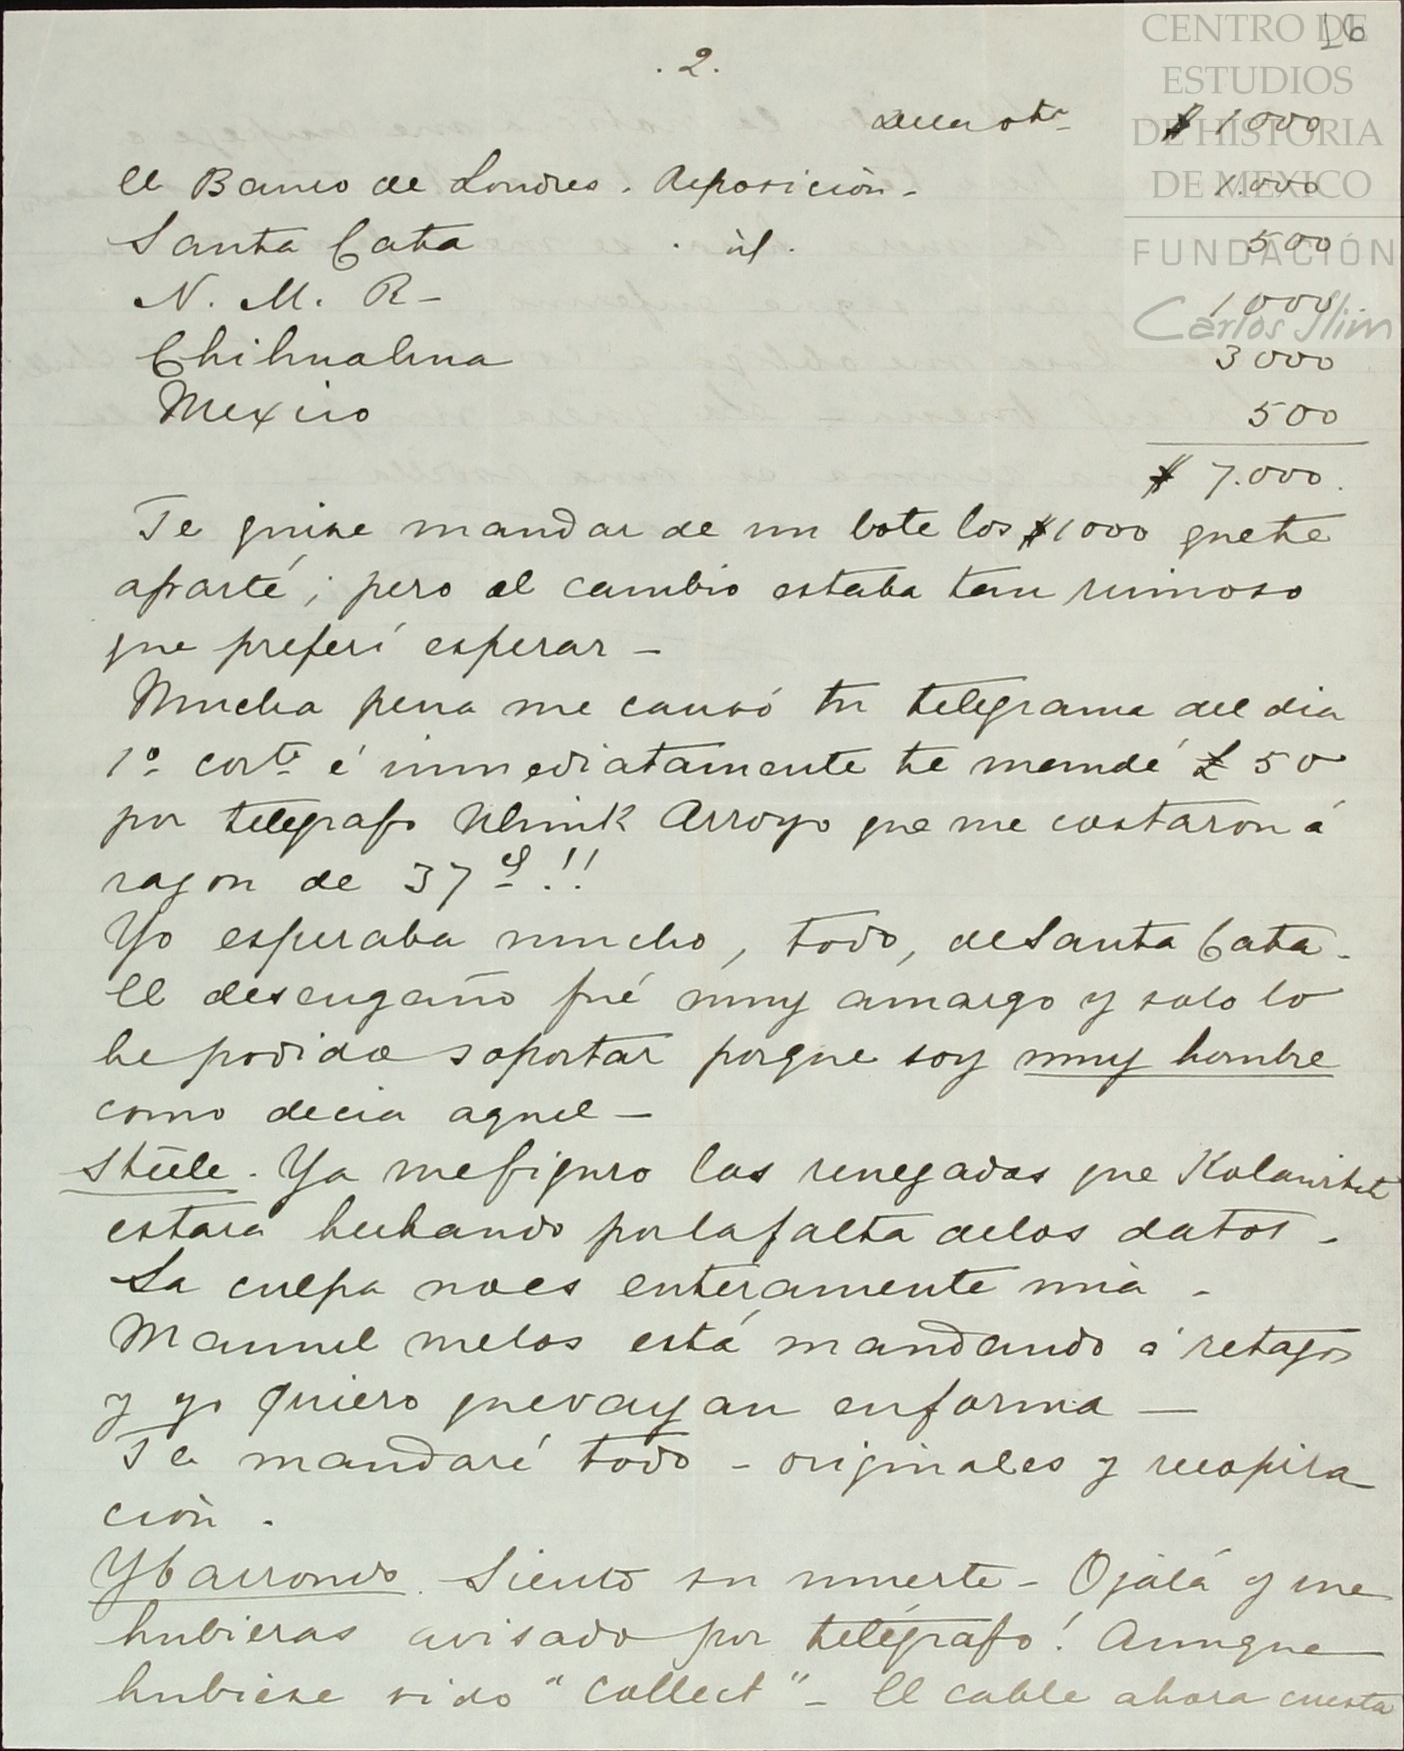 16
CENTRO DE
ESTUDIOS
DE HISTORIA
DE MEXICO
FUNDACIÓN
Carlos Slim
. 2.
$ 1000
El Banco de Londres. Reposición - 1.000
Santa Cata . id. 500
N. M. R - 1000
Chihuahua 3000
Mexico 500
$ 7.000.
Te quise mandar de un bote los $1000 que te
aparté; pero el cambio estaba tan ruinoso
que preferí esperar -
Mucha pena me causó tu telegrama del dia
1º corte é inmediatamente te mandé £ 50
por telegrafo Arroyo que me costaron á
razon de 37 d !!
Yo esperaba mucho, todo, de Santa Cata -
El desengaño fué muy amargo y solo lo
he podido soportar porque soy muy hombre
como decia aquel -
Steele. Ya me figuro las renegadas que
estara hechando por la falta de los datos -
La culpa no es enteramente mia -
Manuel me los está mandando á retazos
y yo quiero que vayan en forma -
Te mandaré todo - originales y recopira
ción -
Ybarrondo. Siento su muerte - Ojalá y me
hubieras avisado por telégrafo! Aunque
hubiese sido "Collect" - El cable ahora cuesta